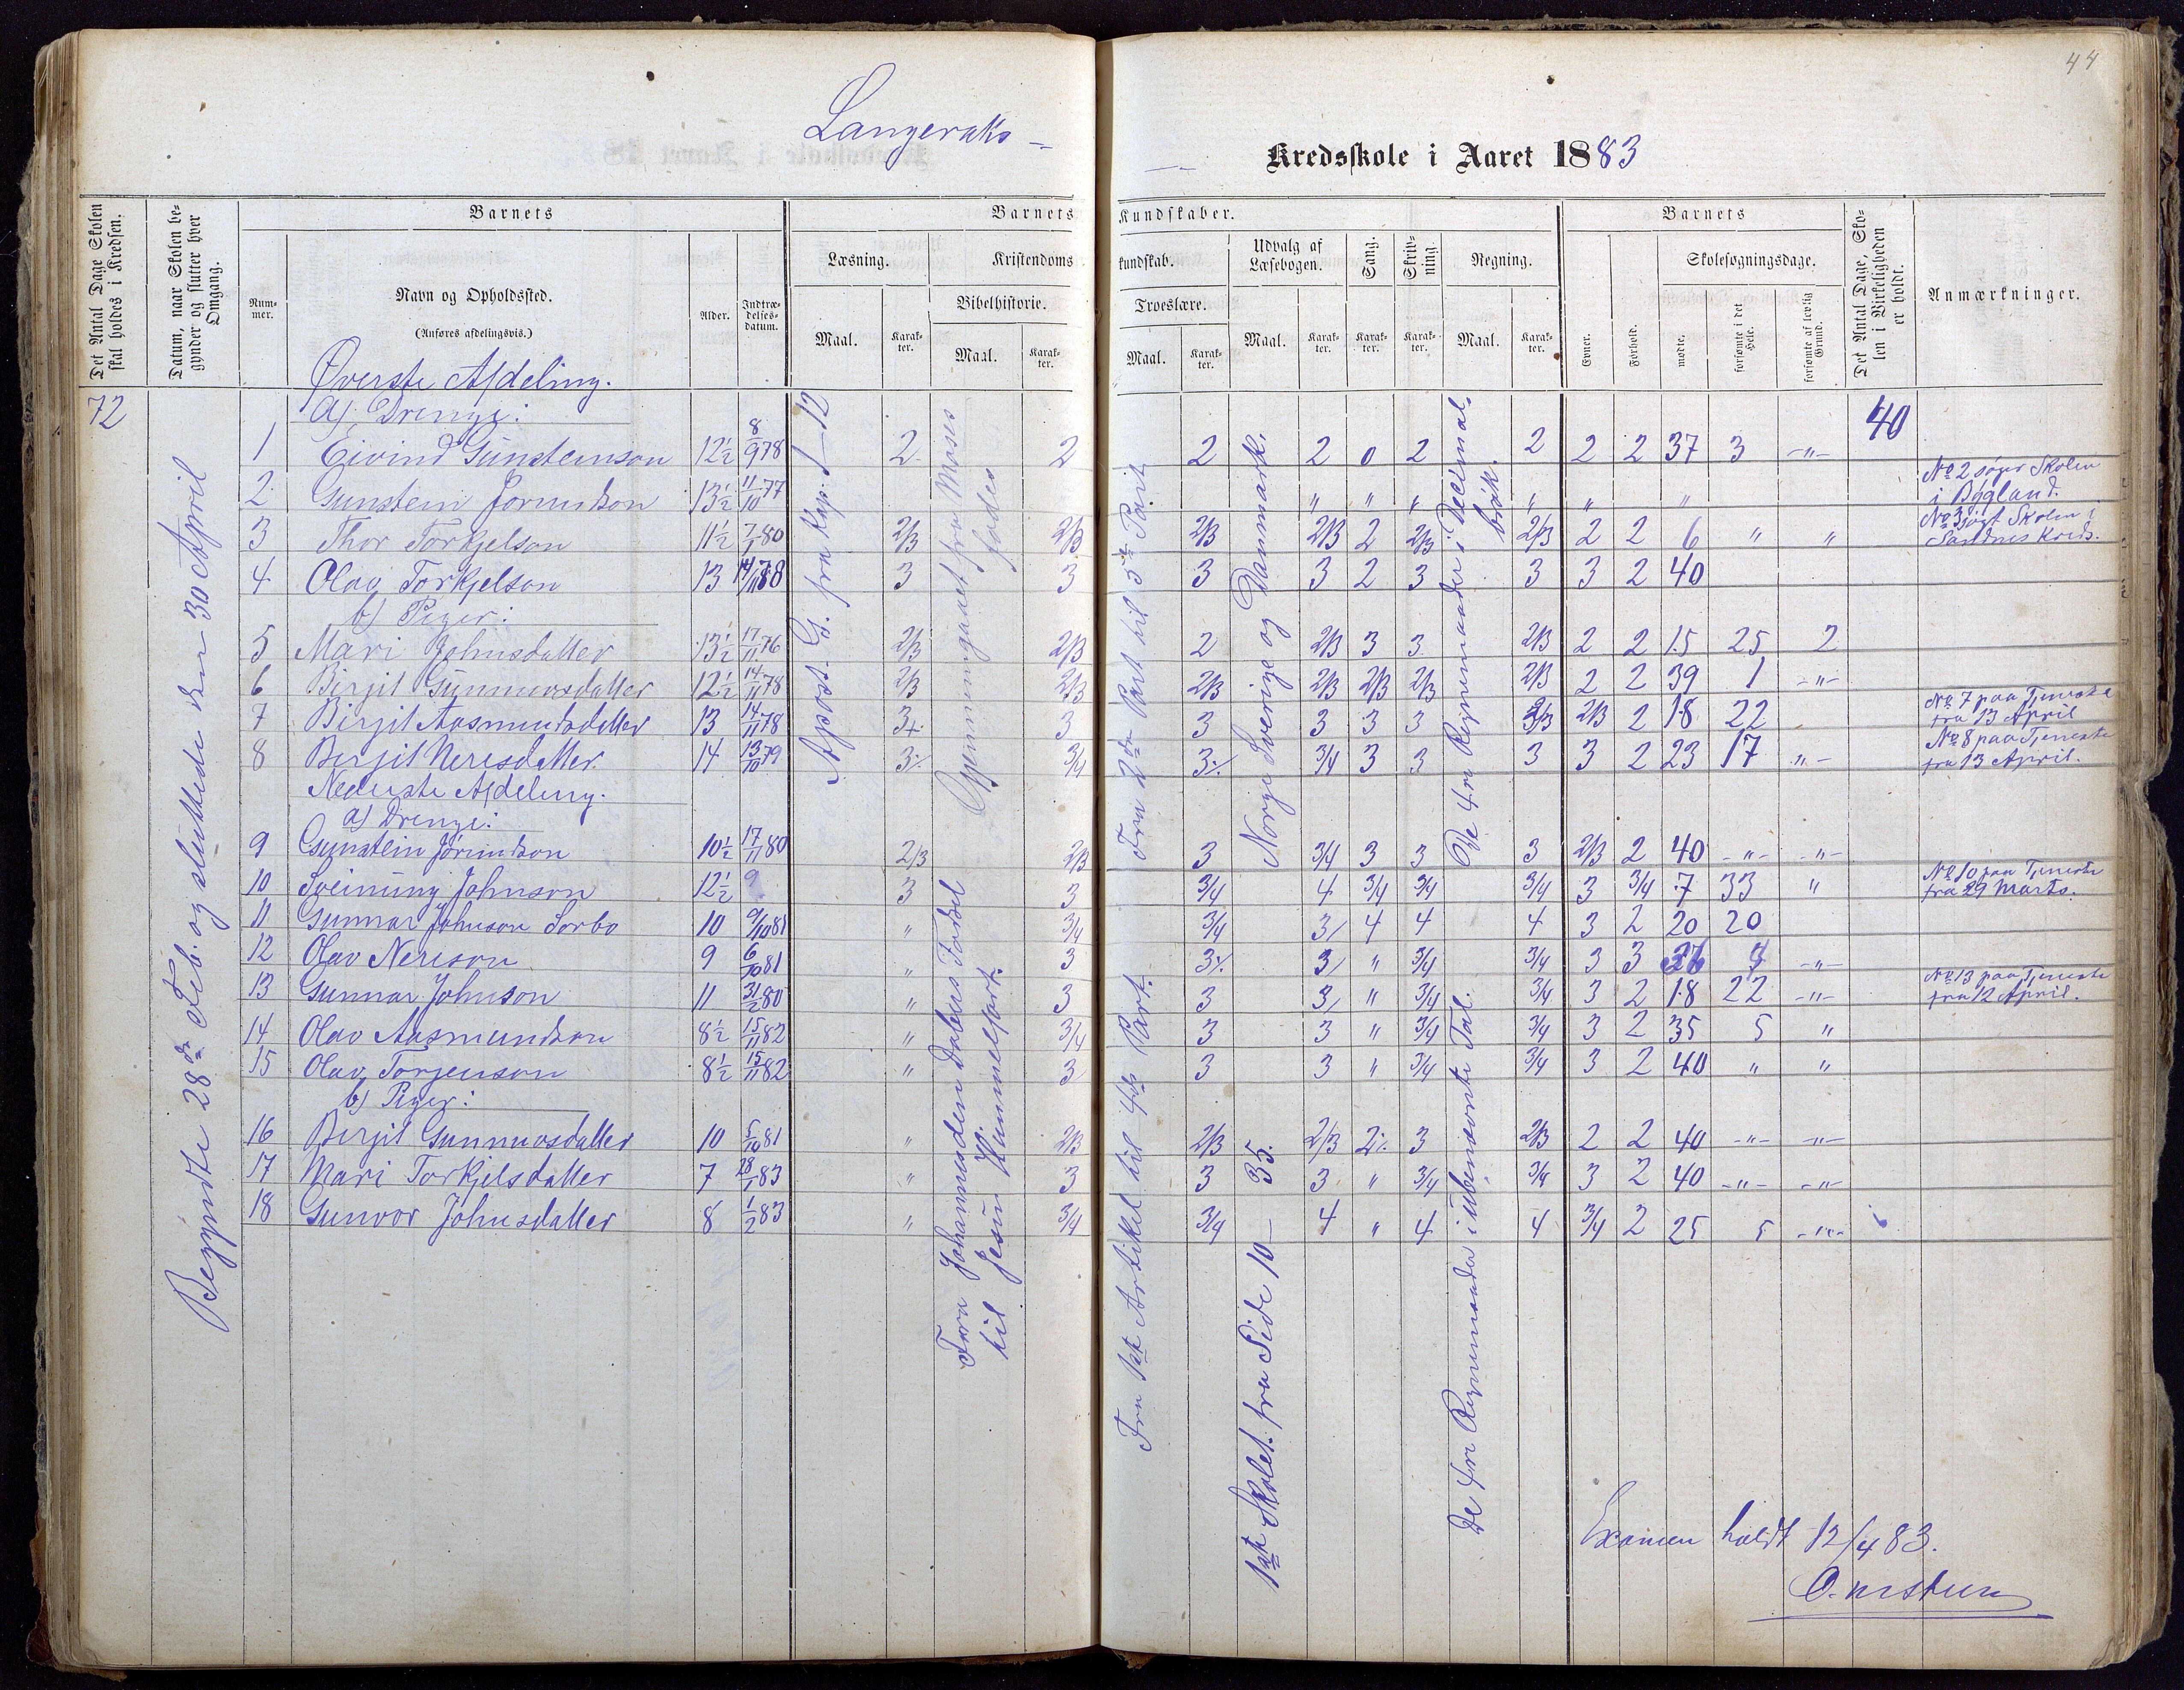 44
Langeraks –
Kredsskole i Aaret 1883
Det Antal Dage Skolen skal holdes i Kredsen.
Datum, naar Skolen begynder og slutter hver Omgang.
Barnets
Nummer.
Navn og Opholdssted.
(Anføres afdelingsvis.)
Alder.
Indtrædelsesdatum.
Barnets Kundskaber.
Læsning.
Kristendomskundskab.
Bibelhistorie.
Troeslære.
Udvalg af Læsebogen.
Sang.
Skrivning.
Regning.
Maal.
Karakter.
Maal.
Karakter.
Maal.
Karakter.
Maal.
Karakter.
Karakter.
Karakter.
Maal.
Karakter.
Barnets
Evner.
Forhold.
Skolesøgningsdage.
mødte.
forsømte i det Hele.
forsømte af lovlig Grund.
Det Antal Dage, Skolen i Virkeligheden er holdt.
Anmærkninger.
72
40
Begyndte 28de Feb. og sluttede den 30 April
Øverste Afdeling.
a) Drenge:
1 Eivind Gunsteinson 12½ 8/9 78 2 2 2 2 0 2 2 2 2 37 3 –"–
2 Gunstein Jorundson 13½ 11/10 77 " " " " " "
No 2 søger Skolen i Bygland.
3 Thor Torkjelson 11½ 7/1 80 2/3 2/3 2/3 2/3 2 2/3 2/3 2 2 6 " "
No 3 søgt Skolen i Sandnes Kreds.
4 Olav Torkjelson 13 14/11 78 3 3 3 3 2 3 3 3 2 40
b) Piger:
5 Mari Johnsdatter 13½ 17/11 76 2/3 2/3 2 2/3 3 3 2/3 2 2 15 25 2
6 Birgit Gunnarsdatter 12½ 14/11 78 2/3 2/3 2/3 2/3 2/3 2/3 2/3 2 2 39 1 –"–
7 Birgit Aasmundsdatter 13 14/11 78 3+ 3 3 3 3 3 2/3 2/3 2 18 22
No 7 paa Tjeneste fra 13 April
8 Birgit Neresdatter 14 13/10 79 3÷ 3/4 3÷ 3/4 3 3 3 3 2 23 17 "–
No 8 paa Tjeneste fra 13 April.
Nederste Afdeling.
a) Drenge:
9 Gunstein Jorundson 10½ 17/11 80 2/3 2/3 3 3/4 3 3 3 2/3 2 40 –"– –"–
10 Sveinung Johnson 12½ 9 3 3 3/4 4 3/4 3/4 3/4 3 3/4 7 33 "
No 10 paa Tjeneste fra 29 Marts.
11 Gunnar Johnson Sorbo 10 9/10 81 " 3/4 3/4 3/ 4 4 4 3 2 20 20
12 Olav Nereson 9 6/10 81 " 3 3÷ 3/ " 3/4 3/4 3 3 36 4 –"–
13 Gunnar Johnson 11 31/2 80 " 3 3 3/ " 3/4 3/4 3 2 18 22 –"–
No 13 paa Tjeneste fra 12 April.
14 Olav Aasmundson 8½ 15/11 82 " 3/4 3 3 " 3/4 3/4 3 2 35 5 "
15 Olav Torjenson 8½ 15/11 82 " 3 3 3 " 3/4 3/4 3 2 40 " "
b) Piger:
16 Birgit Gunnarsdatter 10 5/10 81 " 2/3 2/3 2/3 2÷ 3 2/3 2 2 40 –"– –"–
17 Mari Torkjelsdatter 7 28/1 83 " 3 3 3 " 3/4 3/4 3 2 40 –"– –"–
18 Gunvor Johnsdatter 8 1/2 83 " 3/4 3/4 4 " 4 4 3/4 2 25 5 –"–
Apost. G. fra Kap. 1–12
Gjennemgaaet fra Moses fødes
Fra Johannes den Døbers Fødsel
til Jesu Himmelfart.
Fra 2den Part til 3die Part
Fra 1st Artikel til 4de Part.
Norge Sverige og Danmark.
1ste Skolet. fra Side 10 – 35.
De fire Regnemaader i Decimalbrøk.
De fire Regnemaader i ubenævnte Tal.
Examen holdt 12/4 83.